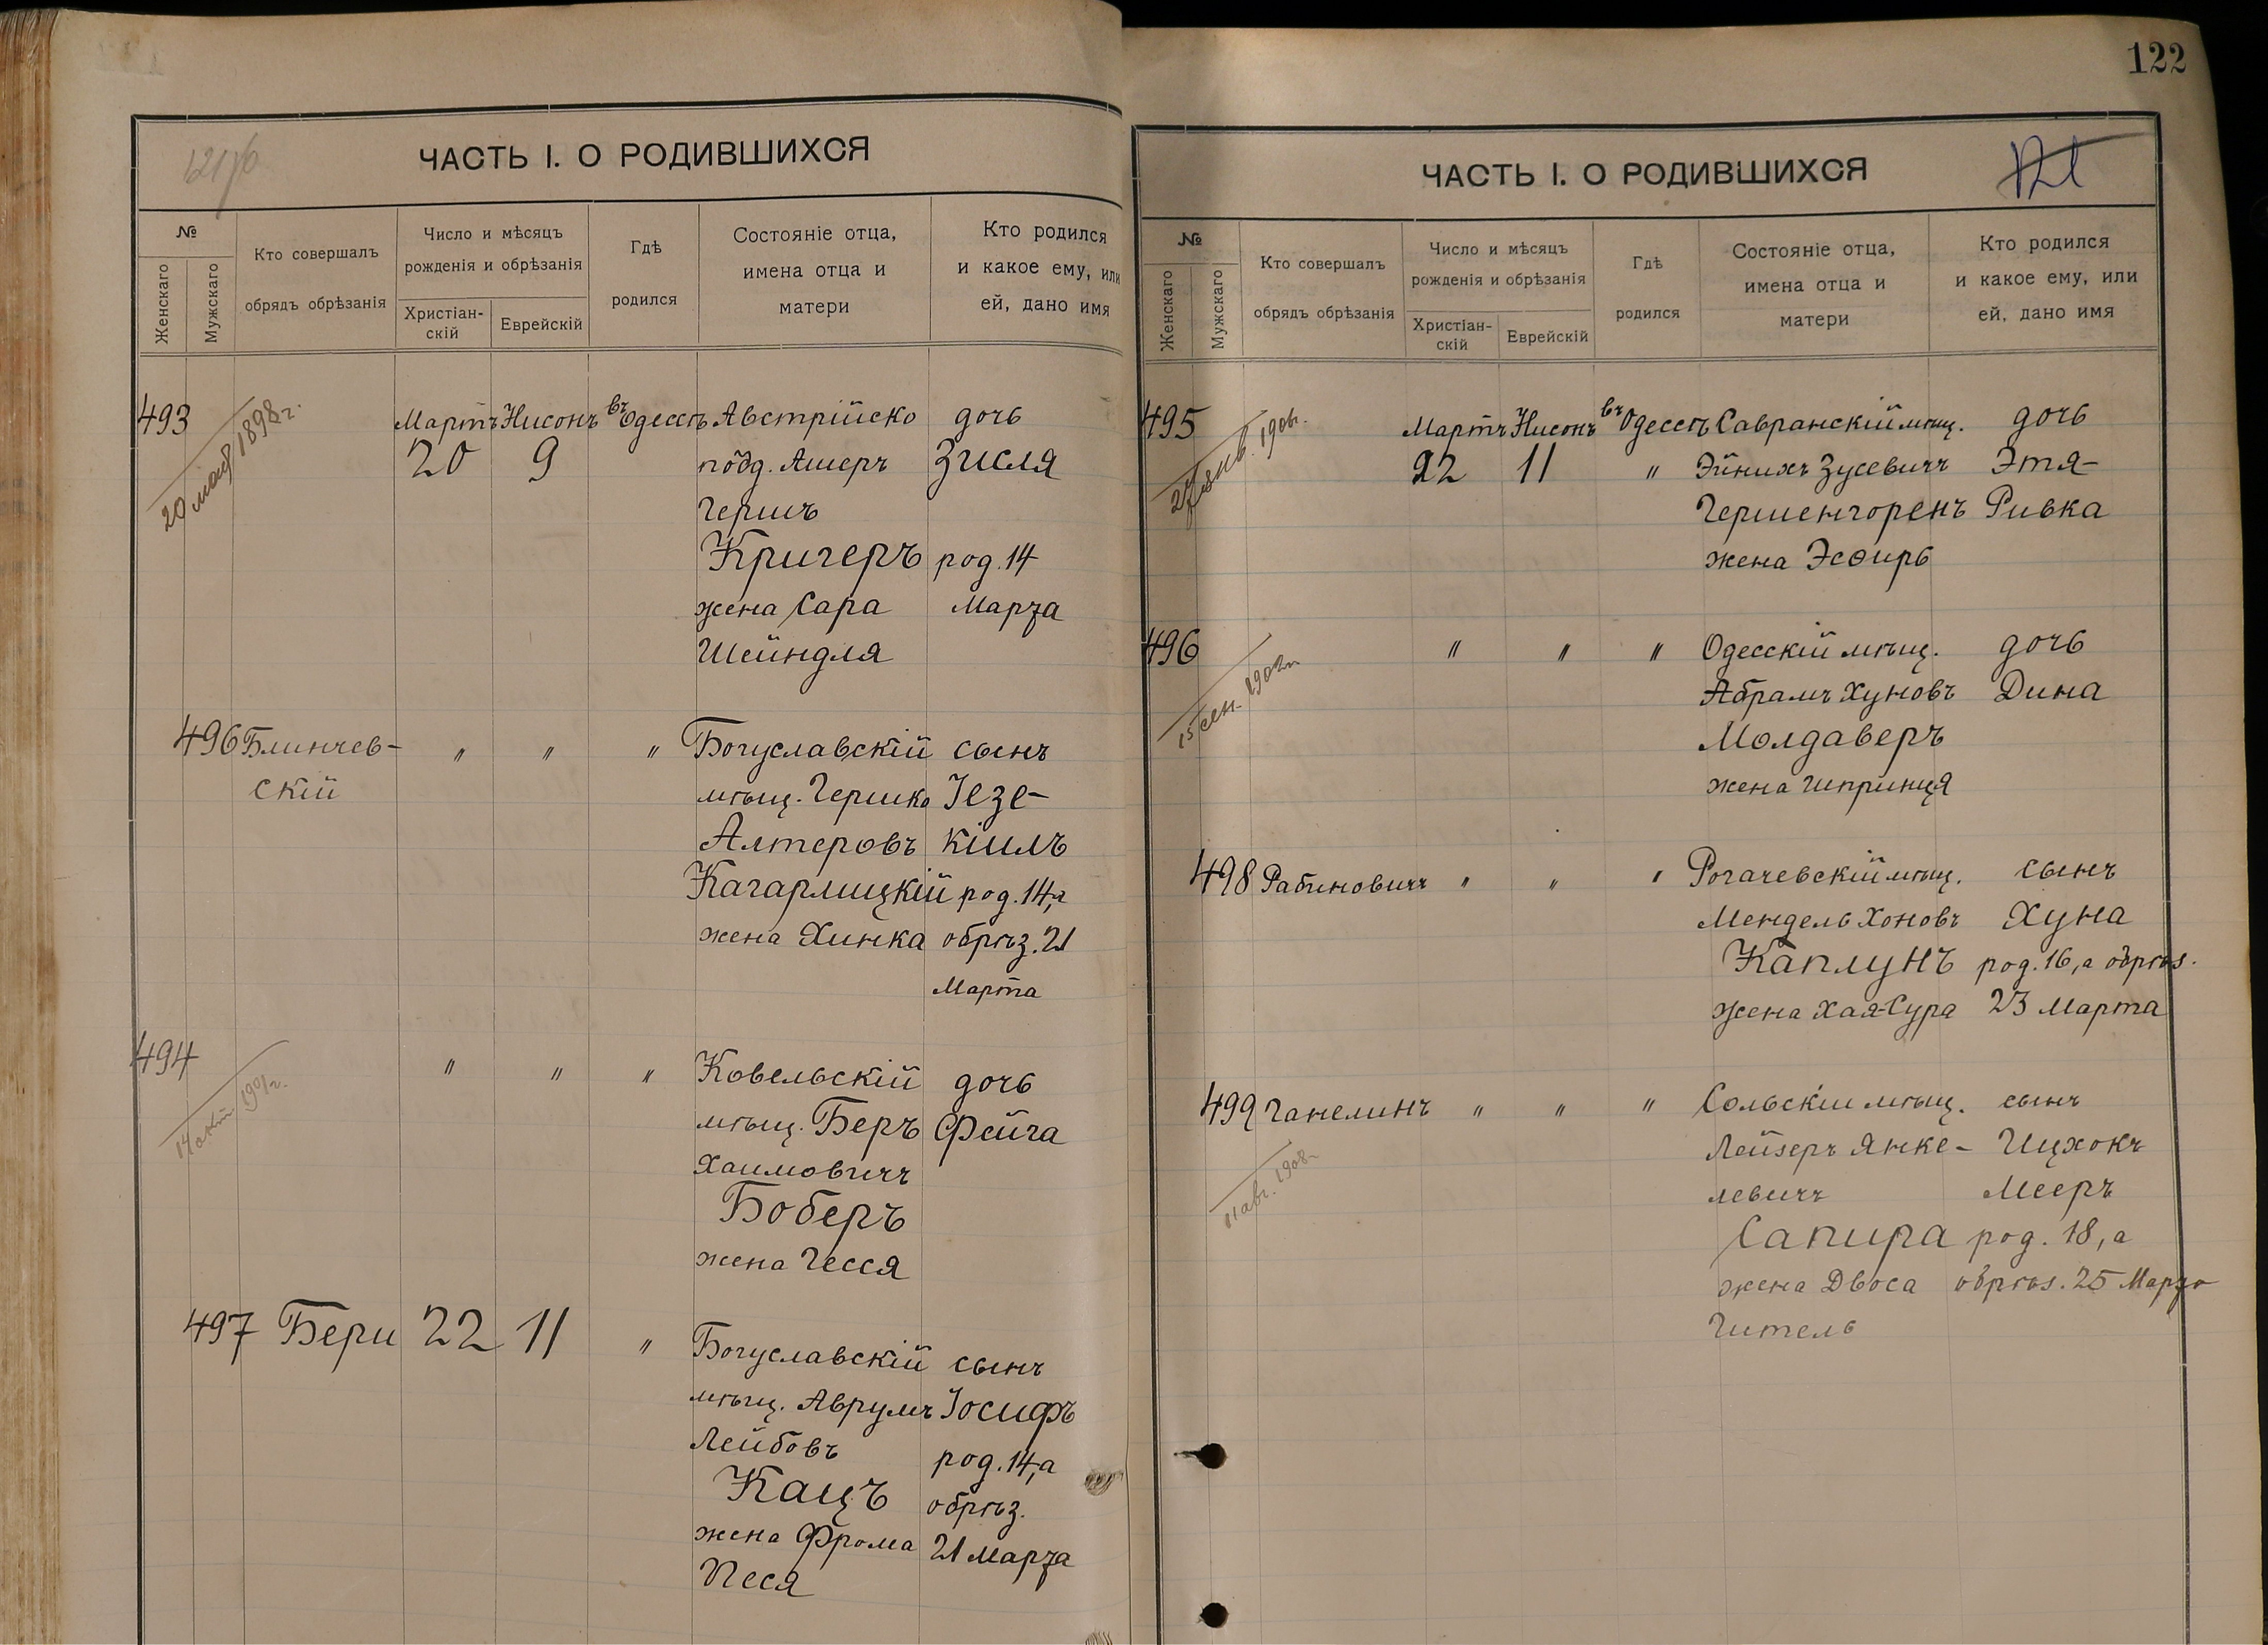 121/б
ЧАСТЬ I. О РОДИВШИХСЯ
№
Женскаго
Мужскаго
Кто совершалъ
обрядъ обрѣзанія
Число и мѣсяцъ
рожденія и обрѣзанія
Христіан-
скій
Еврейскій
Гдѣ
родился
Состояніе отца,
имена отца и
матери
Кто родился
и какое ему, или
ей, дано имя
493
1898 г.
Мартъ Нисонъ въ Одессѣ Австрійско дочь
20 9 подд. Ашеръ Зисля
Гершъ
Кригеръ род. 14
жена Сара Марта
Шейндля
496 Блинчев- " " " Богуславскій сынъ
скій мѣщ. Гершко Іезе-
Алтеровъ кіилъ
Кагарлицкій род. 14, а
жена Хинка обрѣз. 21
Марта
494 " " " Ковельскій дочь
14 окт. 1901 г.
мѣщ. Беръ Фейга
Хаимовичъ
Боберъ
жена Гесся
497 Бери 22 11 " Богуславскій сынъ
мѣщ. Аврумъ Іосифъ
Лейбовъ род. 14, а
Кацъ обрѣз.
жена Фрома 21 Марта
Песя
122
ЧАСТЬ I. О РОДИВШИХСЯ
121
№
Женскаго
Мужскаго
Кто совершалъ
обрядъ обрѣзанія
Число и мѣсяцъ
рожденія и обрѣзанія
Христіан-
скій
Еврейскій
Гдѣ
родился
Состояніе отца,
имена отца и
матери
Кто родился
и какое ему, или
ей, дано имя
495
Мартъ Нисонъ въ Одессѣ Савранскій мѣщ. дочь
22 11 " Эйнихъ Зусевичъ Этя-
Гершенгоренъ Ривка
жена Эсѳирь
496 " " " Одесскій мѣщ. дочь
15 сен. 1902 г.
Абрамъ Хуновъ Дина
Молдаверъ
жена Шпринця
498 Рабиновичъ " " " Рогачевскій мѣщ. сынъ
Мендель Хоновъ Хуна
Каплунъ род. 16, а обрѣз.
жена Хая-Сура 23 Марта
499 Ганелинъ " " " Сольскій мѣщ. сынъ
11 авг. 1908 г.
Лейзеръ Янке- Ицхокъ
левичъ Мееръ
Сапира род. 18, а
жена Двоса обрѣз. 25 Марта
Гитель